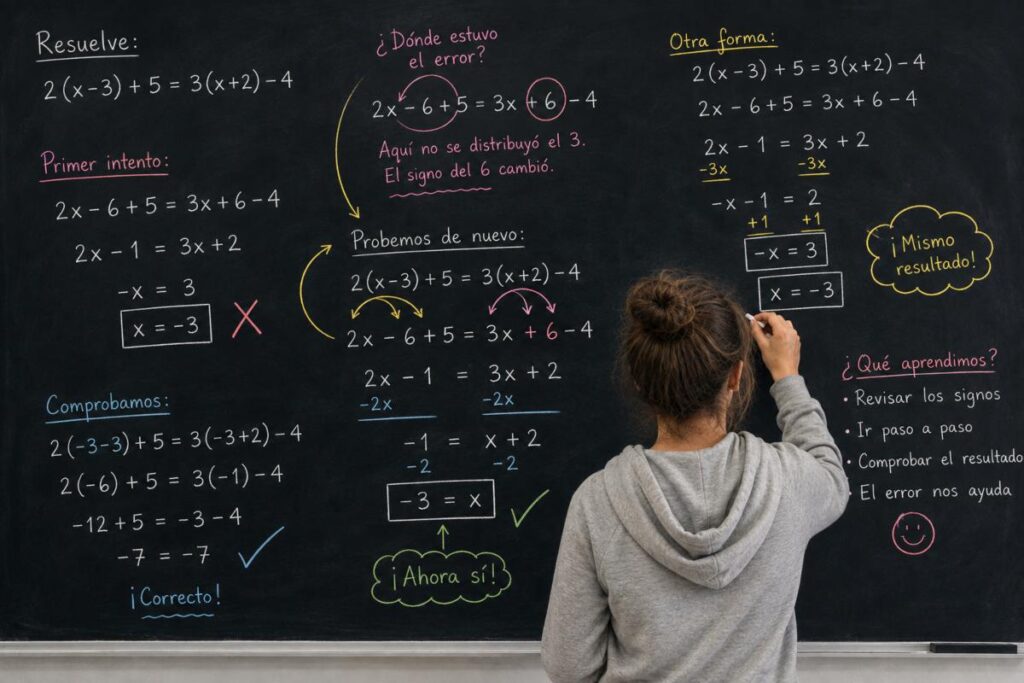 Resuelve:
2(x-3) + 5 = 3(x+2) - 4
Primer intento:
2x - 6 + 5 = 3x + 6 - 4
2x - 1 = 3x + 2
-x = 3
x = -3 X
Comprobamos:
2(-3-3) + 5 = 3(-3+2) - 4
2(-6) + 5 = 3(-1) - 4
-12 + 5 = -3 - 4
-7 = -7 ✓
¡Correcto!
¿Dónde estuvo
el error?
2x - 6 + 5 = 3x + 6 - 4
Aquí no se distribuyó el 3.
El signo del 6 cambió.
Probemos de nuevo:
2(x-3) + 5 = 3(x+2) - 4
2x - 6 + 5 = 3x + 6 - 4
2x - 1 = 3x + 2
-2x -2x
-1 = x + 2
-2 -2
-3 = x ✓
¡Ahora sí!
Otra forma:
2(x-3) + 5 = 3(x+2) - 4
2x - 6 + 5 = 3x + 6 - 4
2x - 1 = 3x + 2
-3x -3x
-x - 1 = 2
+1 +1
-x = 3
x = -3
¡Mismo
resultado!
¿Qué aprendimos?
• Revisar los signos
• Ir paso a paso
• Comprobar el resultado
• El error nos ayuda